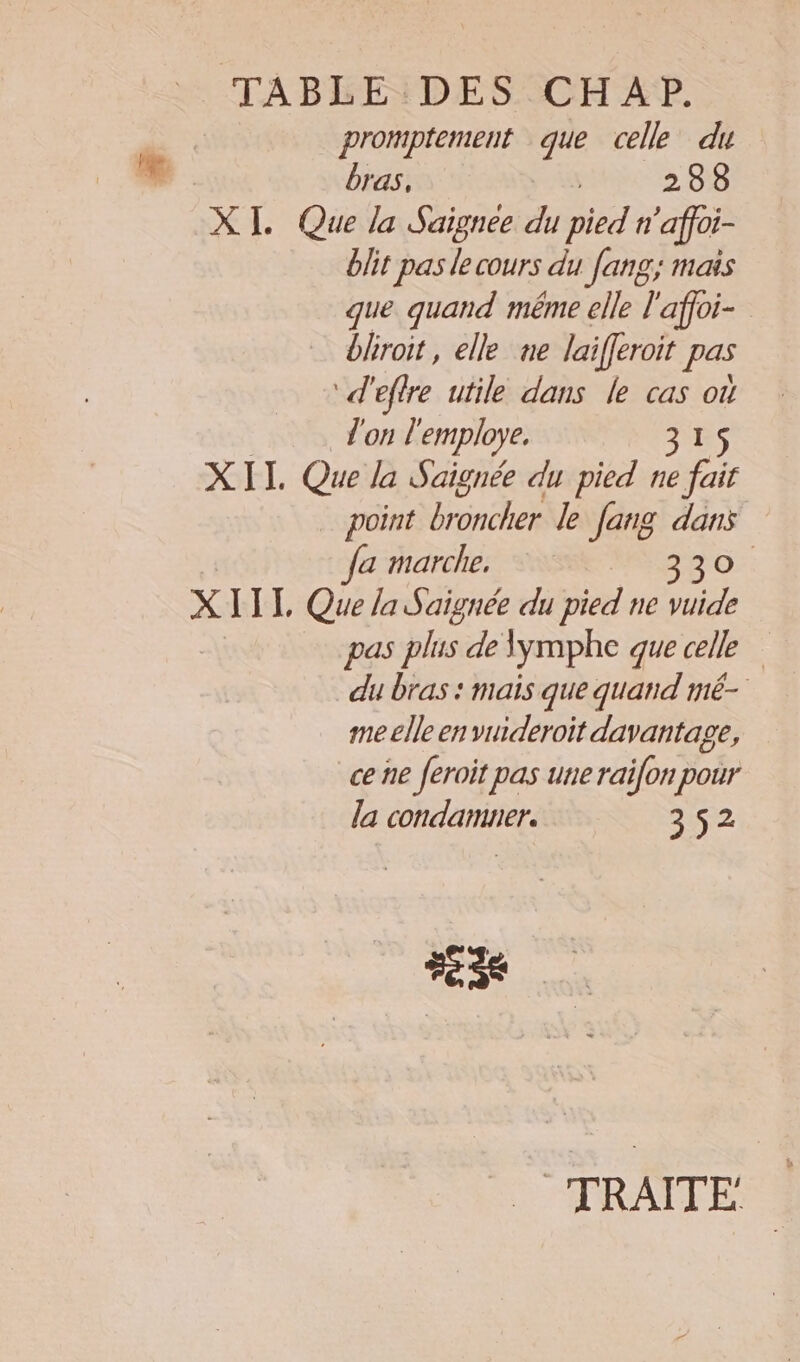 TABLE DES CHAP.
promptement que celle du
bras, 288
XI. Que la Saignée du pied n'affoi-
blit pas le cours du ſang; mais
que quand même elle l'affoi-
bliroit, elle ne laiſſeroit pas
d'eſtre utile dans le cas où
l'on l'employe. 315
XII. Que la Saignée du pied ne fait
point broncher le ſang dans
ſa marche. 330
XIII. Que la Saignée du pied ne vuide
pas plus de lymphe que celle
du bras : mais que quand mê-
me elle en vuideroit davantage,
ce ne ſeroit pas une raiſon pour
la condamner. 352
TRAITE'